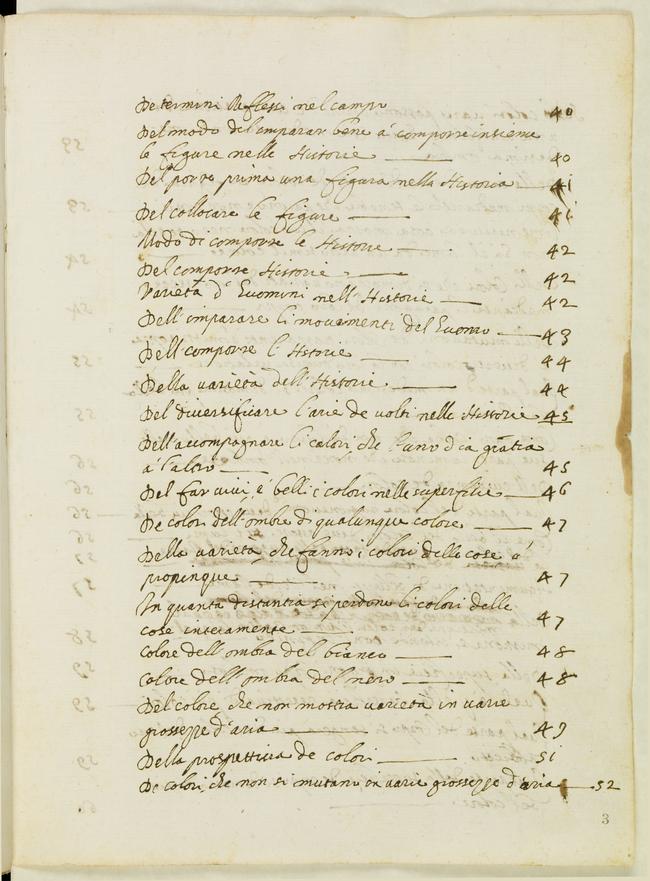 De termini Reflessi nel campo 40
Del modo del imparar bene a comporre insieme
le figure nelle Historie 40
Del porre prima una figura nella Historia 41
Del collocare le figure 41
Modo di comporre le Historie 42
Del comporre Historie 42
Varietà d'Huomini nell'Historie 42
Dell'imparare li movimenti del Huomo 43
Dell comporre l'Historie 44
Della varietà dell'Historie 44
Del diversificare l'arie de volti nelle Historie 45
Dell'accompagnare li colori, che l'uno dia gratia
a l'altro 45
Del far vivi, e belli i colori nelle superfitie 46
De colori dell'ombre di qualunque colore 47
Della varietà, che fanno i colori delle cose
propinque 47
In quanta distantia si perdono li colori delle
cose interamente 47
Colore dell'ombra del bianco 48
Colore dell'ombra del nero 48
Del colore, che non mostra varietà in varie
grosseppe d'aria 49
Della prospettiva de colori 51
De colori, che non si mutano in varie grosseppe d'aria 52
3